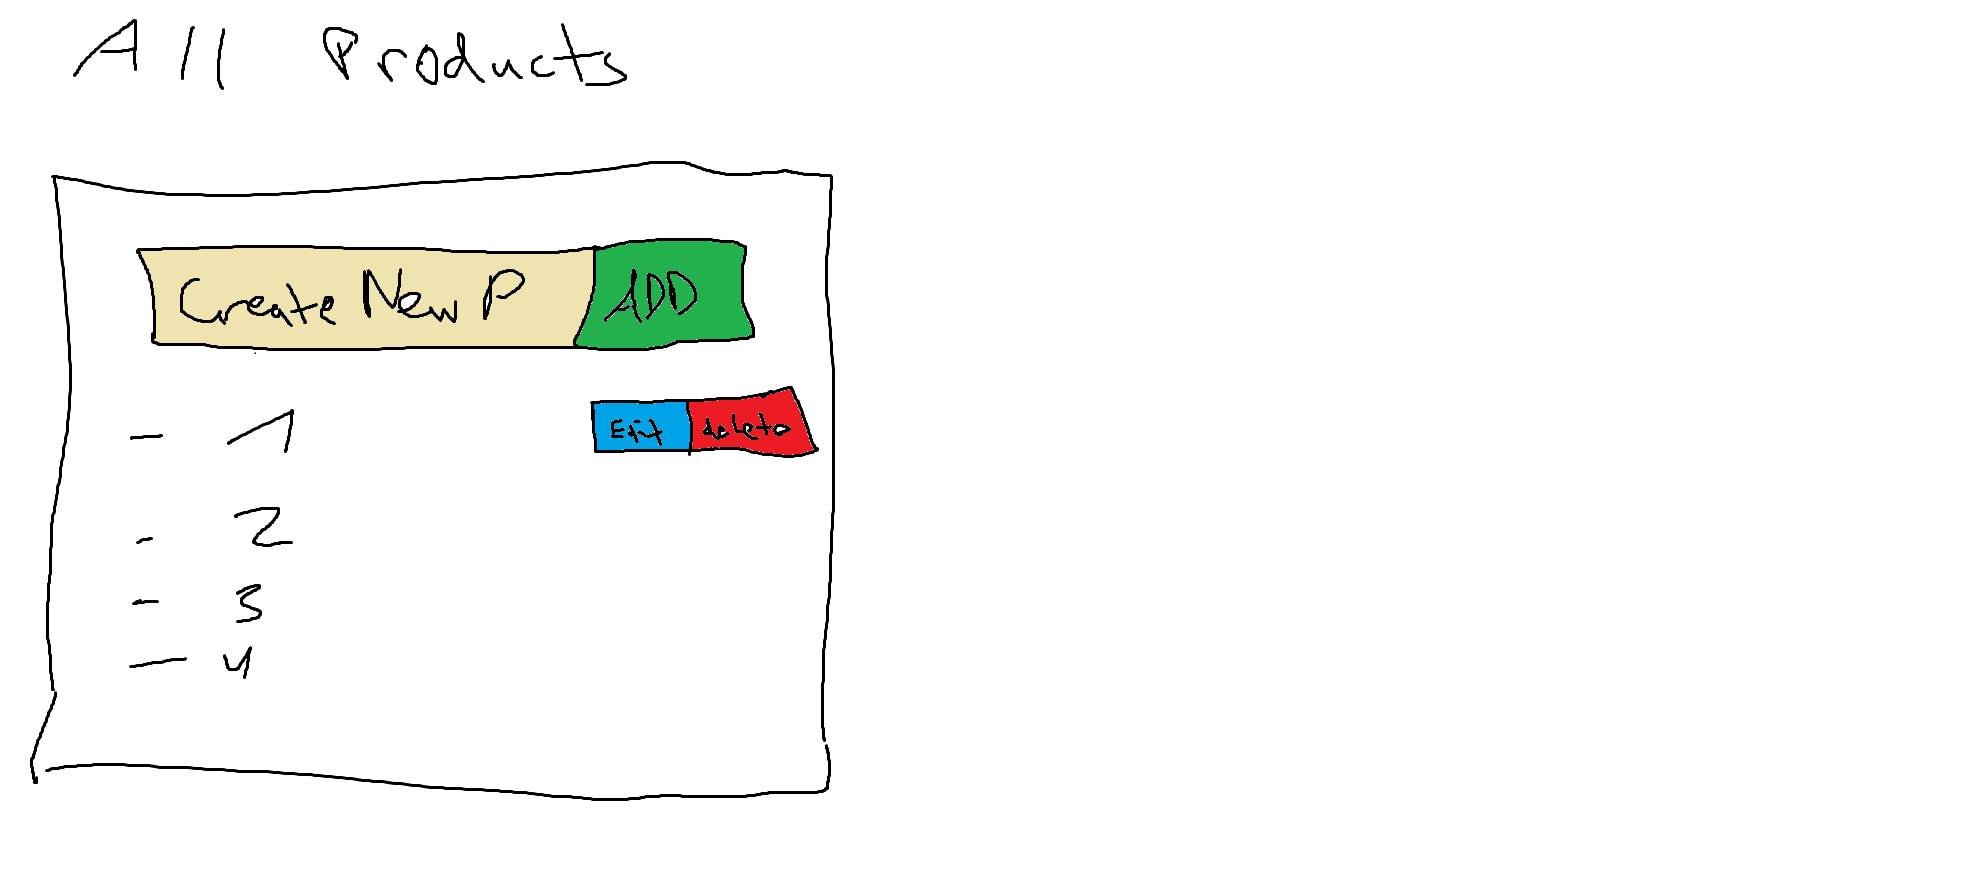 All Products
Create New P ADD
- 1 Edit delete
- 2
- 3
- 4